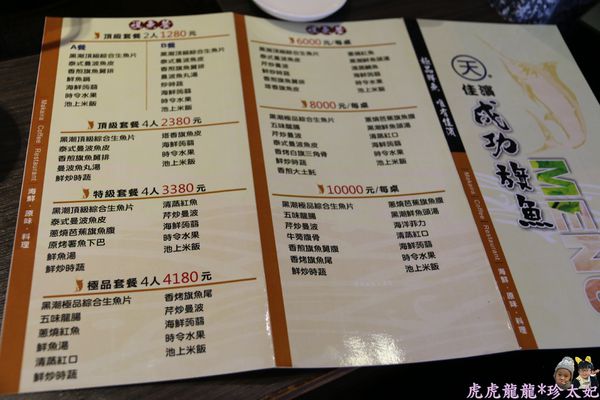 頂級套餐 2人 1280元
A餐
黑潮頂級綜合生魚片
泰式曼波魚皮
香煎旗魚舅排
鮮魚鍋
時令水果
池上米飯
B餐
黑潮頂級綜合生魚片
泰式曼波魚皮
香煎旗魚舅排
曼波魚丸湯
鮮炒時蔬
時令水果
池上米飯
頂級套餐 4人 2380元
黑潮頂級綜合生魚片
泰式曼波魚皮
香煎旗魚舅排
曼波魚丸湯
鮮炒時蔬
塔香旗魚皮
海鮮蒟蒻
時令水果
池上米飯
特級套餐 4人 3380元
黑潮頂級綜合生魚片
泰式曼波魚皮
蔥燒芭蕉旗魚腹
原烤薯魚下巴
鮮魚湯
鮮炒時蔬
清蒸紅魚
芹炒曼波
海鮮蒟蒻
時令水果
池上米飯
極品套餐 4人 4180元
黑潮極品綜合生魚片
五味龍腸
蔥燒紅魚
鮮魚湯
清蒸紅口
鮮炒時蔬
香烤旗魚尾
芹炒曼波
海鮮蒟蒻
時令水果
池上米飯
6000元/每桌
黑潮頂級綜合生魚片
泰式曼波魚皮
芹炒曼波
香煎旗魚舅排
塔香旗魚皮
蔥燒紅魚
海鮮蒟蒻
鮮炒時蔬
時令水果
池上米飯
8000元/每桌
黑潮極品綜合生魚片
五味龍腸
芹炒曼波
泰式曼波魚皮
香烤白旗三角骨
香煎大土魠
蔥燒芭蕉旗魚腹
黑潮鮮魚頭湯
清蒸紅口
海鮮蒟蒻
鮮炒時蔬
時令水果
池上米飯
10000元/每桌
黑潮極品綜合生魚片
五味龍腸
芹炒曼波
牛蒡腹骨
香煎旗魚舅腹
香烤旗魚尾
鮮炒時蔬
蔥燒芭蕉旗魚腹
黑潮鮮魚頭湯
海洋菲力
清蒸紅口
海鮮蒟蒻
時令水果
池上米飯
Makava Coffee Restaurant 海鮮‧原味‧料理
天
佳濱
成功旗魚
MENU
Makava Coffee Restaurant 海鮮‧原味‧料理
虎虎龍龍*珍太妃